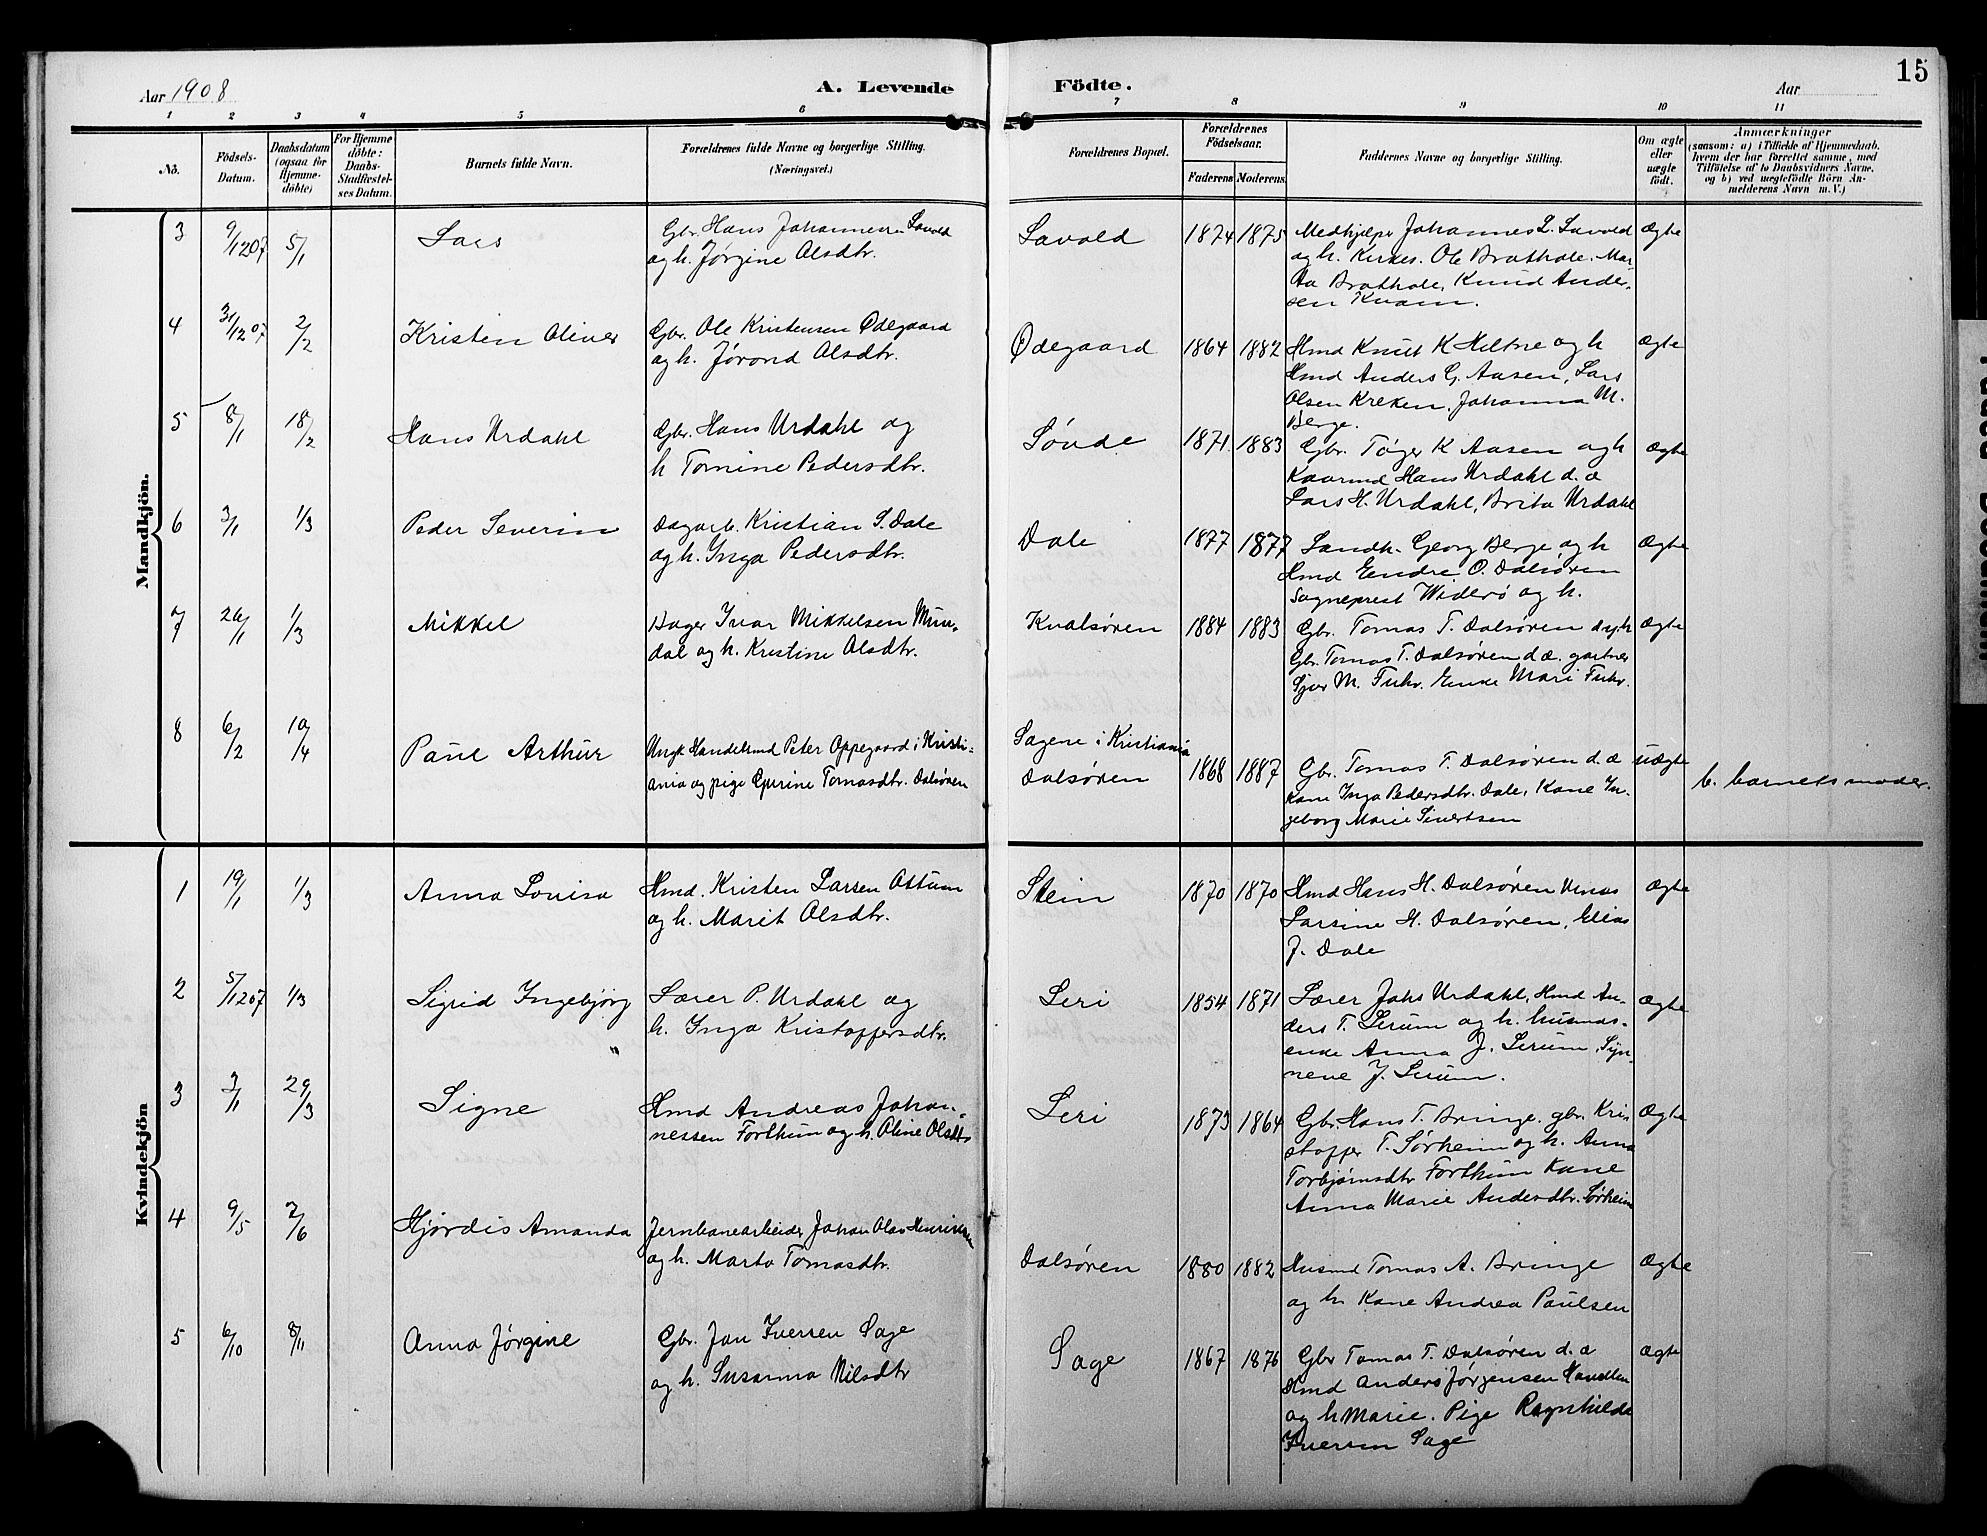 Aar 1908
A. Levende
Födte.
Aar
15
1 2 3 4 5 6 7 8 9 10 11
No.
Födsels-
Datum.
Daabsdatum
(ogsaa for
Hjemme-
döbte)
For Hjemme
döbte:
Daabs-
Stadfæstel-
ses Datum.
Barnets fulde Navn.
Forældrenes fulde Navne og borgerlige Stilling.
(Næringsvei.)
Forældrenes Bopæl.
Forældrenes
Födselsaar.
Faderens Moderens
Faddernes Navne og borgerlige Stilling.
Om ægte
eller
uægte
födt.
Anmærkninger
(saasom: a) i Tilfælde af Hjemmedaab,
hvem der har forrettet samme, med
Tilföielse af to Daabsvidners Navne.
og b) ved uægtefödte Börn An-
melderens Navn m.V.)
Mandkjön.
3 9/12 07 5/1 Lars
Gbr. Hans Johannesen Lavold
og h. Jørgine Olsdtr.
Lavold 1874 1875
Medhjælper Johannes L. Lavold
og h. Kirkes. Ole Brathole. Mar-
ta Brathole, Knud Ander-
sen Kvam.
Ægte
4 31/12 07 2/2 Kristen Oliver
Gbr. Ole Kristensen Ødegaard
og h. Jørond Olsdtr.
Ødegaard 1864 1882
Hmd Knut K Heltne og h
Hmd Anders G. Aasen, Lars
Olsen Kreken, Johanna M.
Berge.
Ægte
5 8/1 18/2 Hans Urdahl
Gbr. Hans Urdahl og
h Tomine Pedersdtr.
Søvde 1871 1883
Gbr. Tøger K Aasen og h
Kaarmd Hans Urdahl d. æ
Lars H. Urdahl, Brita Urdahl
Ægte
6 3/1 1/3 Peder Severin
Dagarb. Kristian S. Dale
og h. Inga Pedersdtr.
Dale 1877 1877
Landh. Georg Berge og h
Hmd Endre O. Dalsøren
Sogneprest Widerø og h.
Ægte
7 26/1 1/3 Mikkel
Bager Ivar Mikkelsen Mun-
dal og h. Kristine Olsdtr.
Kvalsøren 1884 1883
Gbr. Tomas T. Dalsøren d.y. h
Gbr. Tomas T. Dalsøren d.æ. gartner
Sjur M. Fuhr. Enke Mari Fuhr.
Ægte
8 6/2 10/4 Paul Arthur
Ungk Handelsmd Peter Oppegaard i Kristi-
ania og pige Gurine Tomasdtr. Dalsøren
Sagene i Kristiania
Dalsøren 1868 1887
Gbr. Tomas T. Dalsøren d. æ
Kone Inga Pedersdtr. Dale, Kone In-
geborg Marie Sivertsen
uægte
b. barnets moder.
Kvindekjön
1 19/1 1/3 Anna Lovisa
Hmd. Kristen Larsen Ottum
og h. Marit Olsdtr.
Stein 1870 1870
Hmd Hans H. Dalsøren
Larsine H. Dalsøren, Elias
J. Dale
Ægte
2 5/12 07 1/3 Sigrid Ingebjørg
Lærer P. Urdahl og
h. Inga Kristoffersdtr.
Leri 1854 1871
Lærer Johs Urdahl, Hmd An-
ders T. Lerum og h. husmas-
enke Anna J. Lerum, Syn-
neve J. Lerum.
Ægte
3 3/1 29/3 Signe
Hmd Andreas Johan-
nessen Forthun og h. Oline Olsdtr
Leri 1873 1864
Gbr. Hans T. Bringe, gbr. Kris-
stoffer T. Sørheim og h. Anna
Torbjørnsdtr Forthun Kone
Anna Marie Andersdtr. Sørheim
Ægte
4 9/5 7/6 Hjørdis Amanda
Jernbanearbeider Johan Olav Henriksen
og h. Marta Tomasdtr.
Dalsøren 1880 1882
Husmd Tomas A. Bringe
og h. Kone Andrea Paulsen
Ægte
5 6/10 8/11 Anna Jørgine
Gbr. Jan Iversen Sage
og h. Susanna Nilsdtr
Sage 1867 1876
Gbr Tomas T. Dalsøren d. æ
Hmd Anders Jørgensen
og h Marie. Pige Ragnhilda
Iversen Sage
Ægte